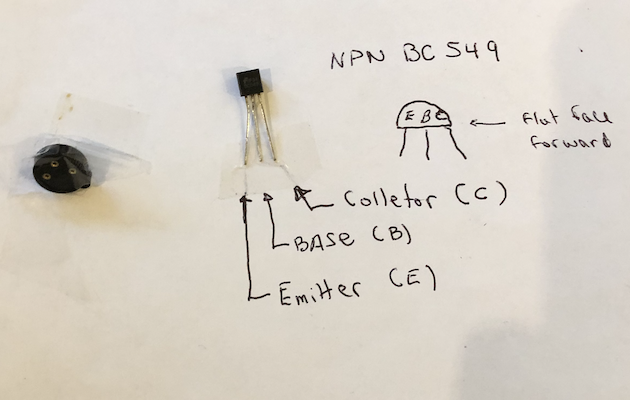 NPN BC549
EBC
Flat face
forward
Colletor (C)
BASE (B)
Emitter (E)